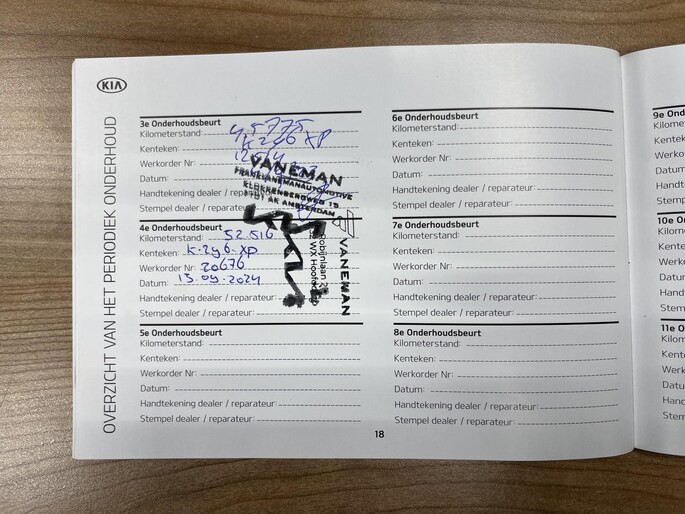 KIA
OVERZICHT VAN HET PERIODIEK ONDERHOUD
3e Onderhoudsbeurt
Kilometerstand: 45775
Kenteken: K-246-XP
Werkorder Nr:
Datum:
Handtekening dealer / reparateur:
Stempel dealer / reparateur:
VANEMAN
AK AMSTERDAM
4e Onderhoudsbeurt
Kilometerstand: 52.516
Kenteken: K-246-XP
Werkorder Nr: 20676
Datum: 13.04.2024
Handtekening dealer / reparateur:
Stempel dealer / reparateur:
VANEMAN
Robijnlaan
WX
5e Onderhoudsbeurt
Kilometerstand:
Kenteken:
Werkorder Nr:
Datum:
Handtekening dealer / reparateur:
Stempel dealer / reparateur:
6e Onderhoudsbeurt
Kilometerstand:
Kenteken:
Werkorder Nr:
Datum:
Handtekening dealer / reparateur:
Stempel dealer / reparateur:
7e Onderhoudsbeurt
Kilometerstand:
Kenteken:
Werkorder Nr:
Datum:
Handtekening dealer / reparateur:
Stempel dealer / reparateur:
8e Onderhoudsbeurt
Kilometerstand:
Kenteken:
Werkorder Nr:
Datum:
Handtekening dealer / reparateur:
Stempel dealer / reparateur:
18
9e Onder
Kilome
Kentek
Werko
Datum
Handt
Stemp
10e On
Kilom
Kente
Werk
Datu
Han
Stem
11e O
Kilo
Ken
Werk
Dat
Han
Ste